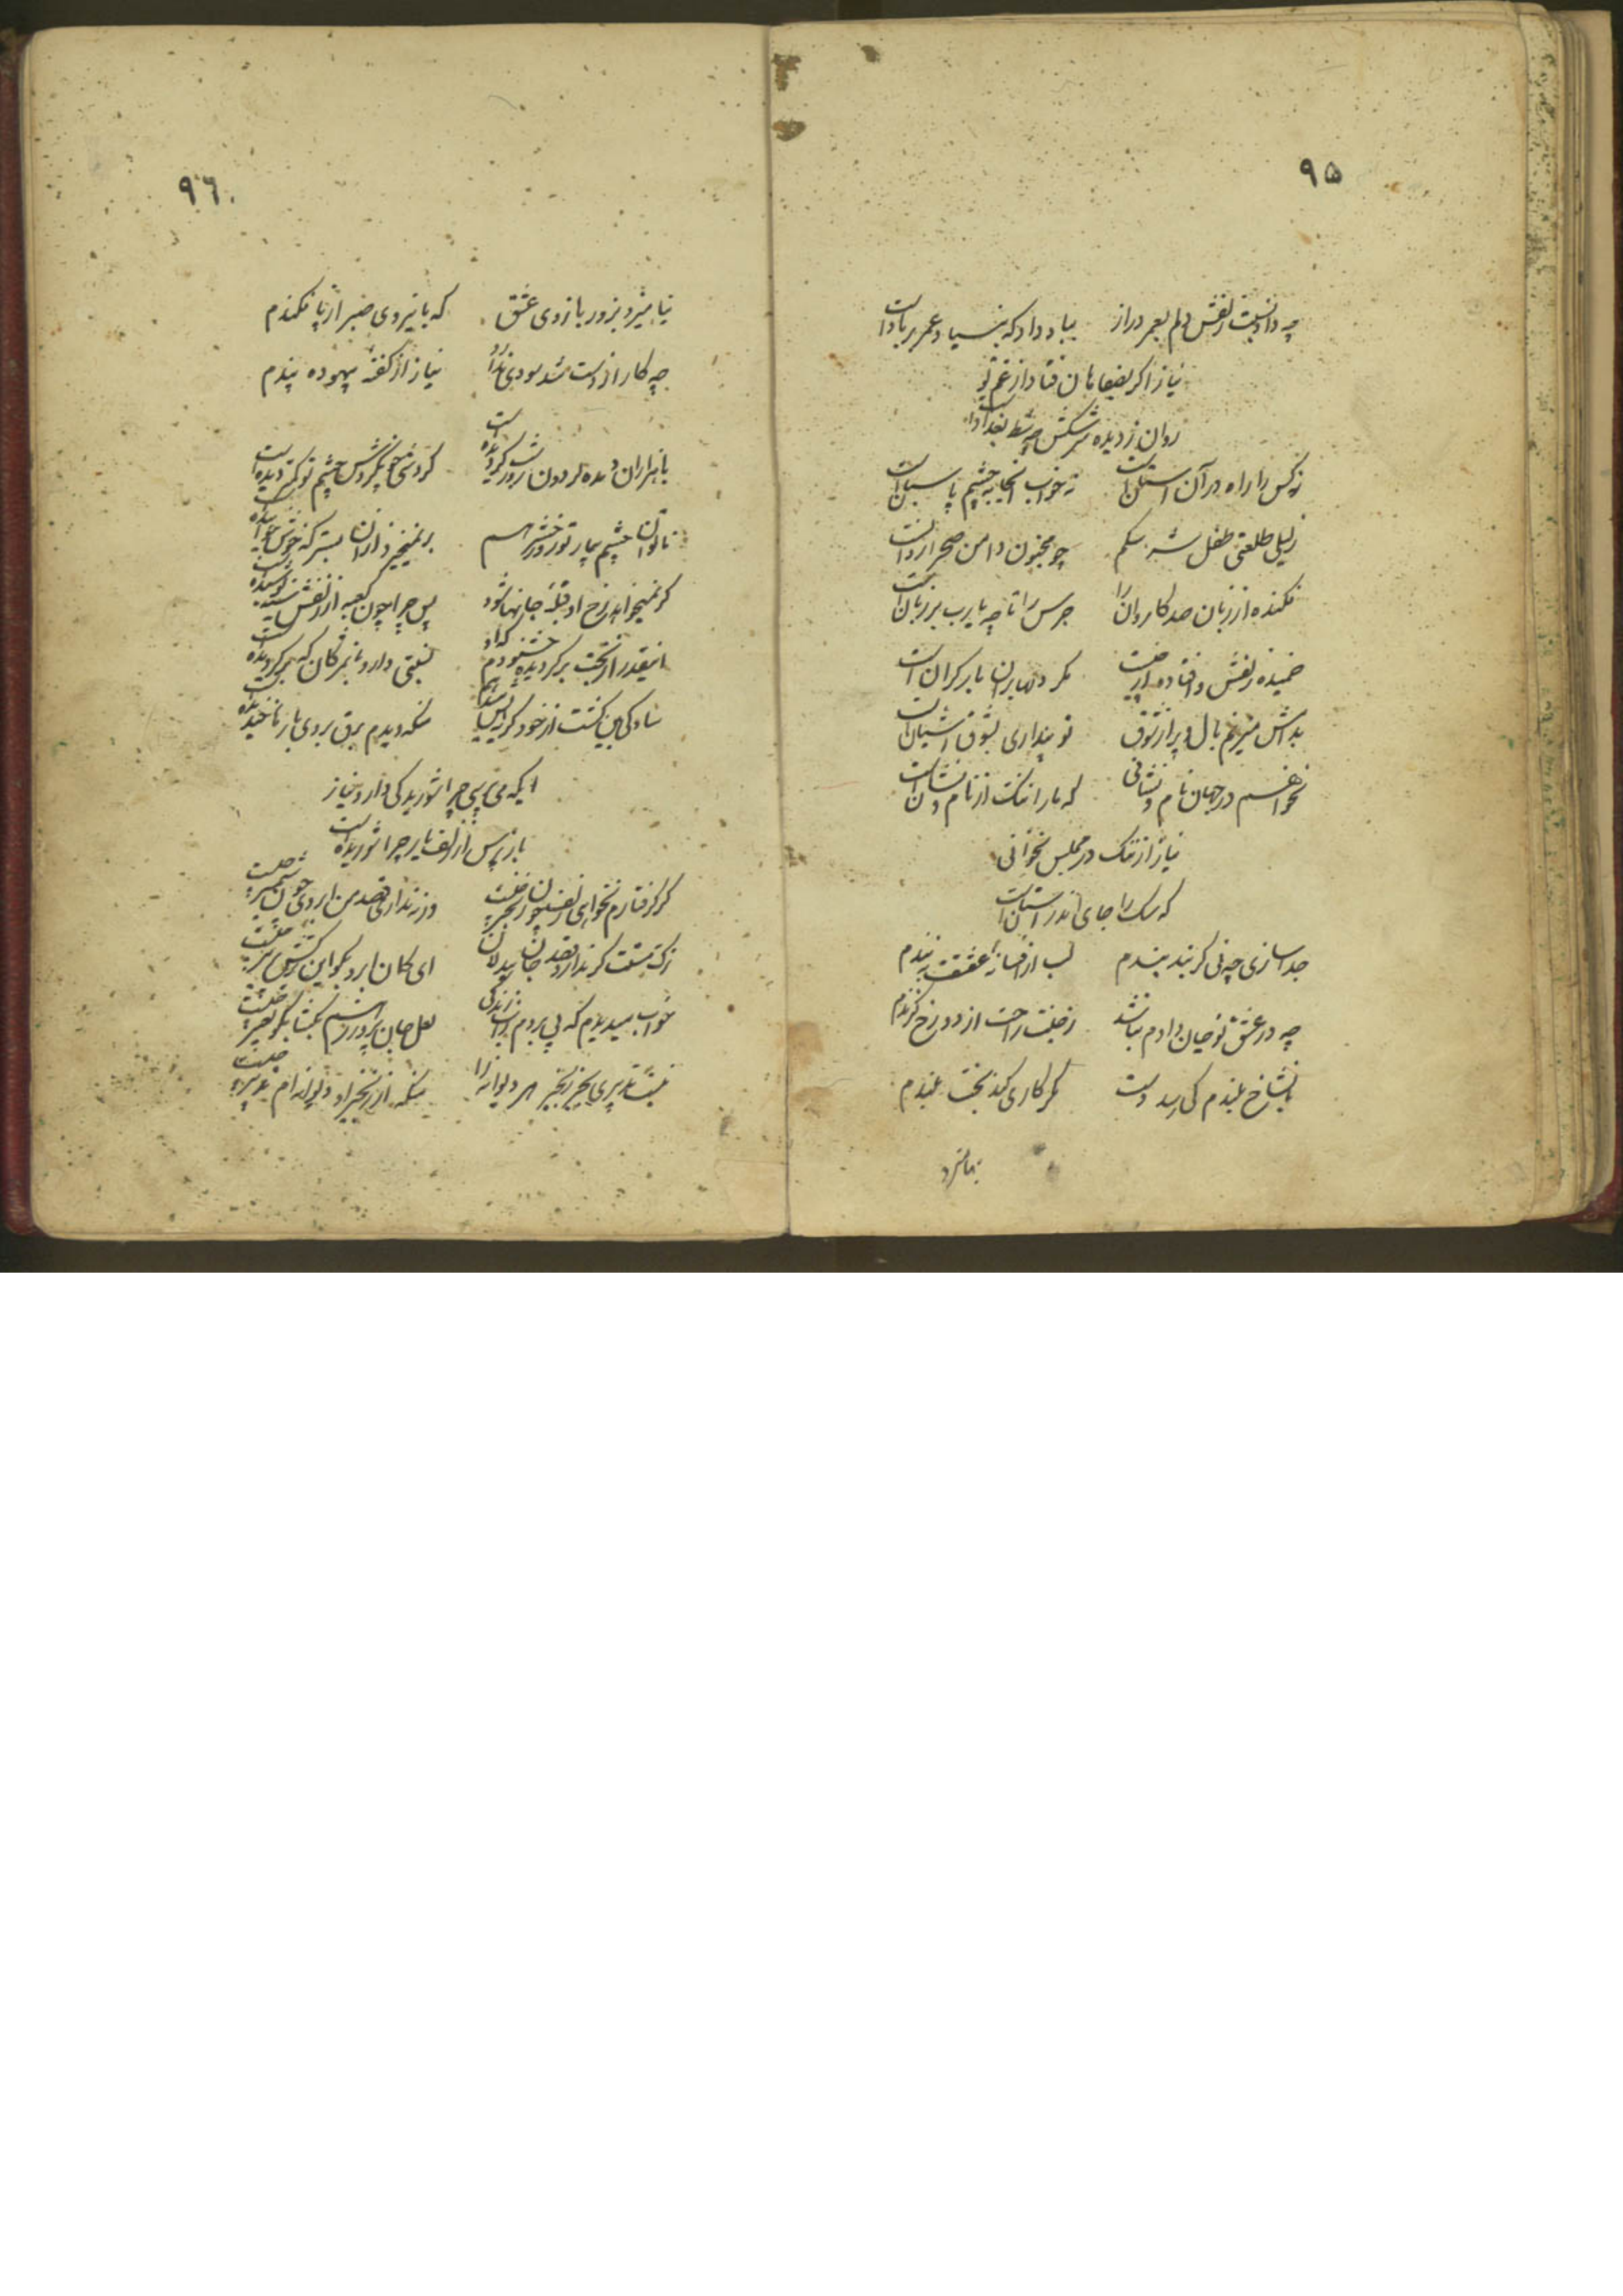 ۹۵
چه داد نسبت زلفش دلم بعمر دراز بباد داد که بنیاد عمر بر باد است
نیاز اگر بضیعابان فتاد از غم تو
روان ز دیده سرشکش چو شط بغداد است
نه کس را راه در آن آستان است نه خواب آنجا به چشم پاسبان است
ز لیلی طلعتی طفل سرشکم چو مجنون دامن صحرا روان است
فکنده از زبان صد کاروان را جرس را تا چه یارب بر زبان است
خمیده زلفش و افتاده از پا مگر دلها بر آن بار گران است
بدامش میزنم بال و پر از شوق تو پنداری بشوق آشیان است
نخواهم در جهان نام و نشانی که ما را ننگ از نام و نشان است
نیاز از ننگ در مجلس نخوانی
که سگ را جای اندر آستان است
جدا سازی چو نی گر بند بندم لب از افسانه عشقت نبندم
چه در عشق تو جان دادم نباشد ز جنت راحت از دوزخ گزندم
بشاخ بلندم کی رسد دست مگر کاری کند بخت بلندم
نیامیزد
۹۶
نیامیزد بزور بازوی عشق که با نیروی صبر از پا فکندم
چه کار از دست شد سودی ندارد نیاز از گفته بیهوده پندم
با هزاران دیده گردون روز و شب گردیده است گردشی چون گردش چشم تو کمتر دیده است
ناتوان چشم بیمار تو روز و هم بر نمیخیزد از آن بستر که خوش خوابیده است
گر نمیخواهد رخ او قبله جانها شود پس چرا چون کعبه از زلفش سیه پوشیده است
اینقدر از بخت برگردیده خشنودم که او نسبتی دارد بمژگانی که برگردیده است
سادگی بین گشت از خود گریه بسیار هم منکه دیدم برق بر وی بارها خندیده است
ایکه می پرسی چرا شوریدگی دارد نیاز
باز پرس از زلف یار چرا شوریده است
گر گرفتارم نخواهی زلف چون زنجیر چیست ور نداری قصد من ابروی چون شمشیر چیست
ترک مستت گر ندارد قصد جان بیدلان ای کمان ابرو بگو این ترکش پر تیر چیست
خواب میدیدم که پی بردم بآب زندگی لعل جان پرور بهم بگشا بگو تعبیر چیست
نیست تدبیری بجز زنجیر هر دیوانه را منکه از زنجیر او دیوانه ام تدبیر چیست